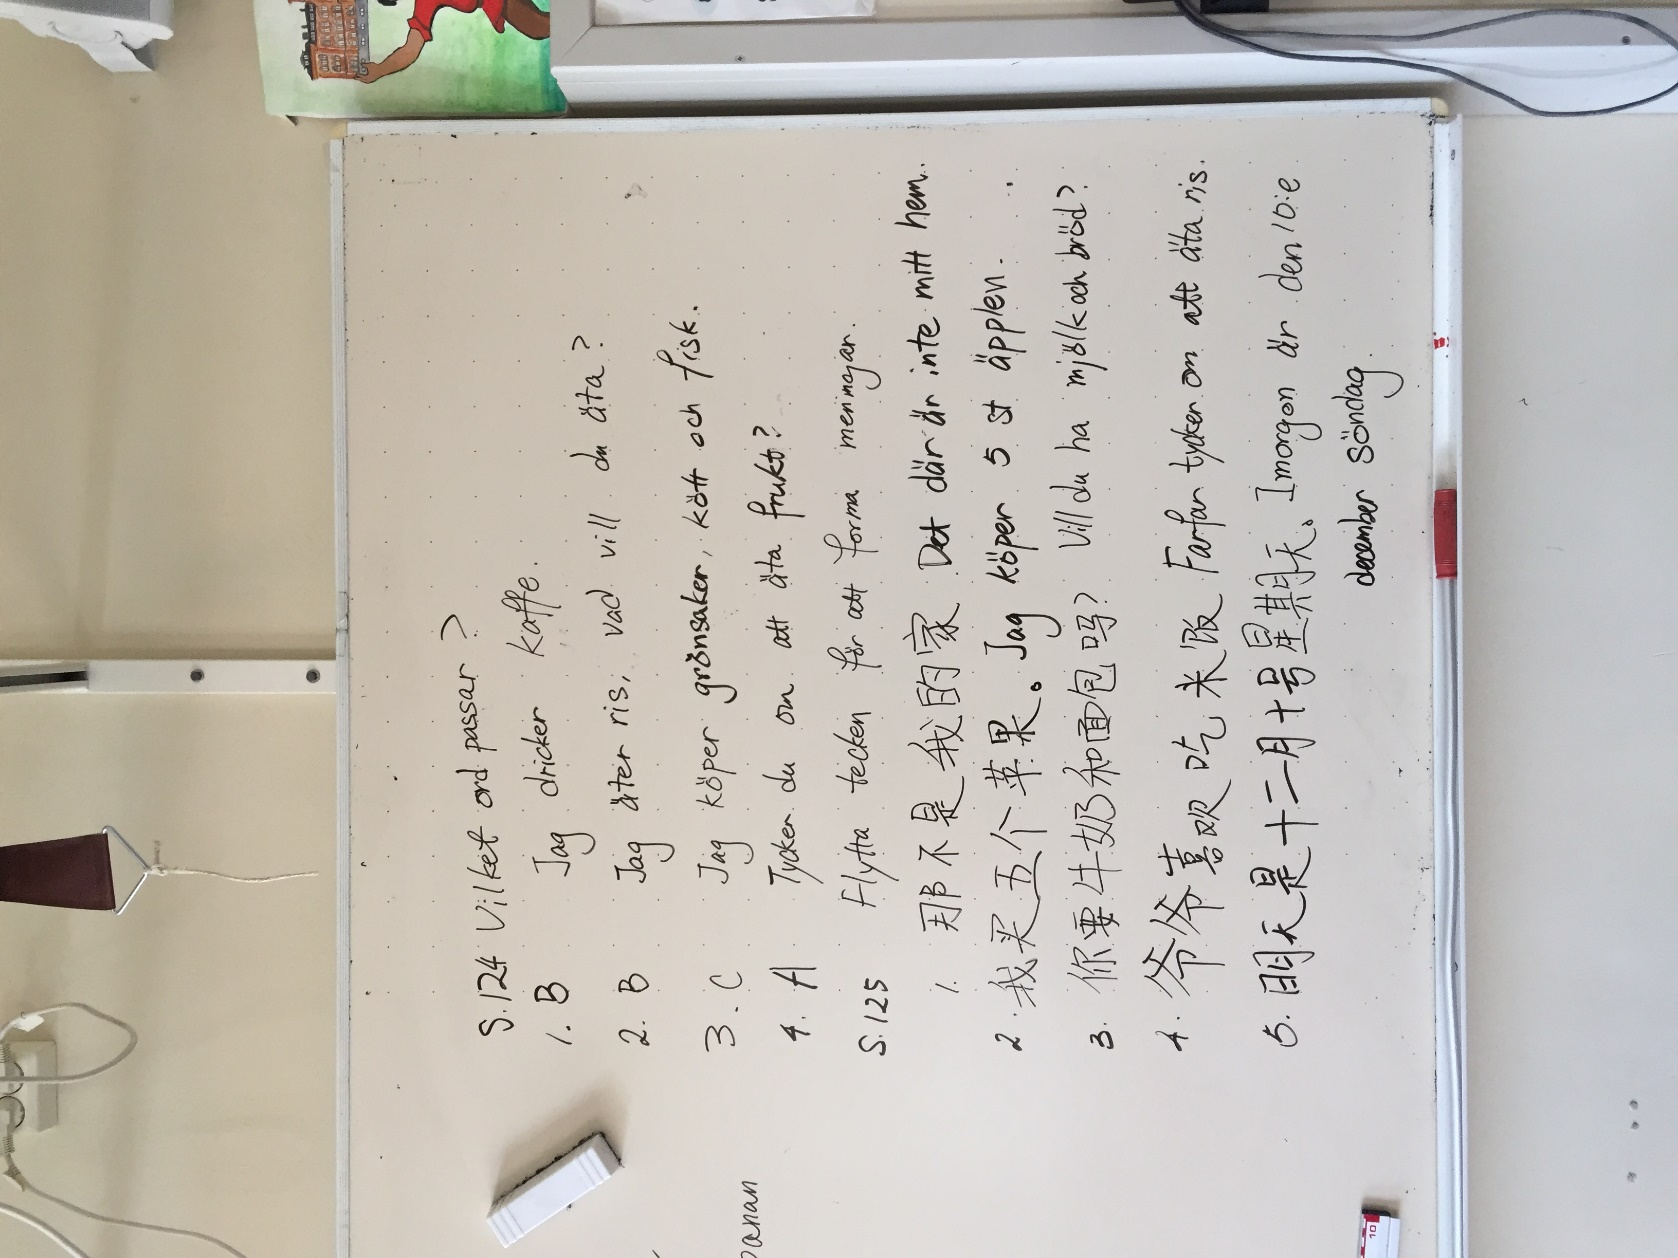 S.124 Vilket ord passar?
1. B Jag dricker kaffe.
2. B Jag äter ris, vad vill du äta?
3. C Jag köper grönsaker, kött och fisk.
4. A Tycker du om att äta frukt?
S.125 Flytta tecken för att forma meningar.
1. 那不是我的家 Det där är inte mitt hem.
2. 我买五个苹果。Jag köper 5 st äpplen.
3. 你要牛奶和面包吗? Vill du ha mjölk och bröd?
4. 爷爷喜欢吃米饭 Farfar tycker om att äta ris.
5. 明天是十二月十号星期天。Imorgon är den 10:e
december söndag.
panan
10